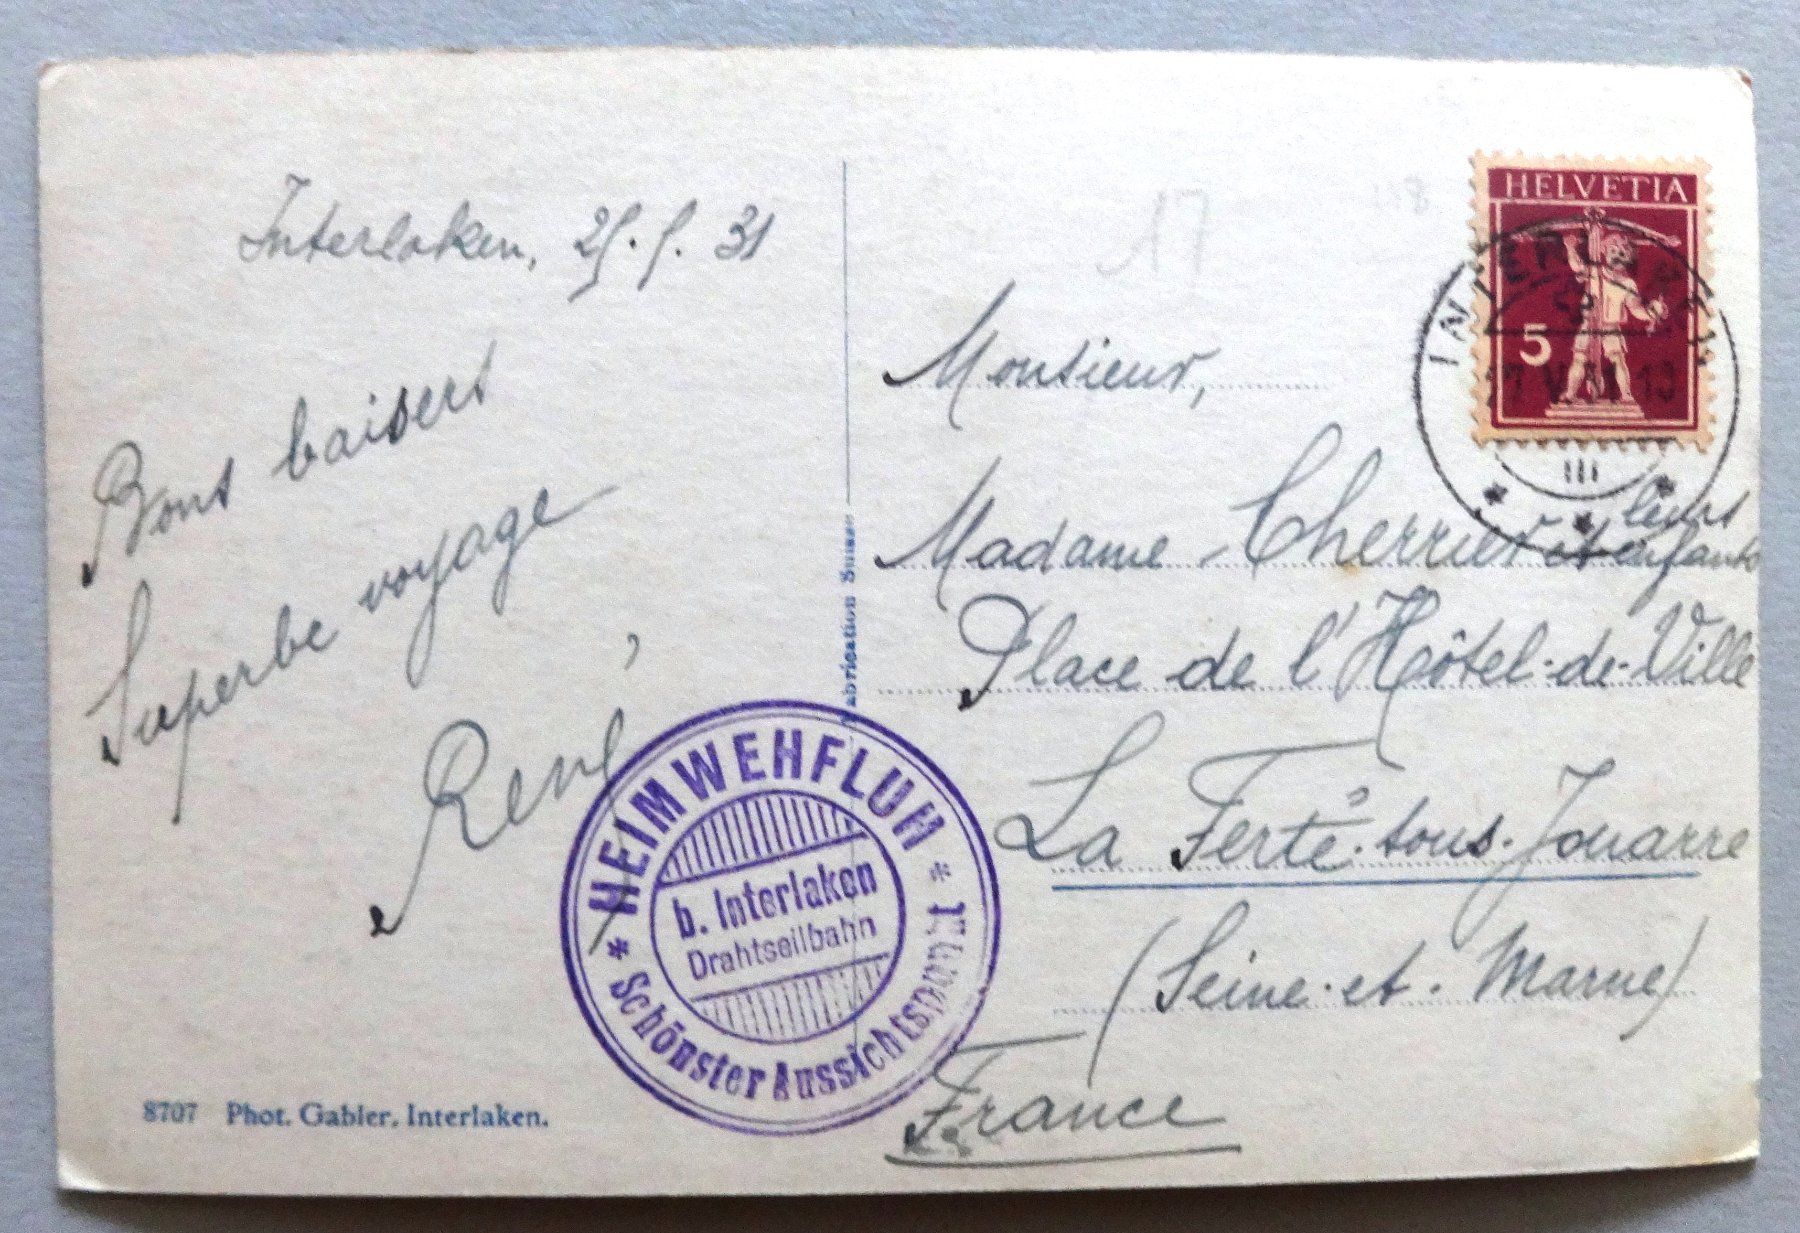 Interlaken, 25.5.31
Bons baisers
Superbe voyage
René
8707 Phot. Gabler, Interlaken.
Fabrication Suisse
HEIMWEHFLUH
b. Interlaken
Drahtseilbahn
* Schönster Aussichtspunkt *
17
HELVETIA
5
INTERLAKEN
III
Monsieur,
Madame Cherrier et leurs enfants
Place de l'Hôtel-de-Ville
La Ferté-sous-Jouarre
(Seine-et-Marne)
France